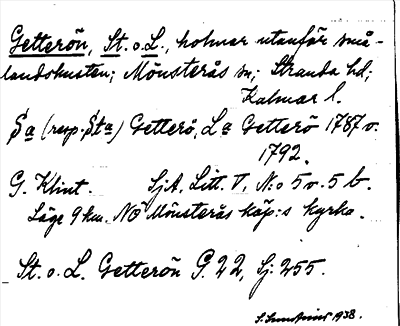 Getterön, St. o. L., holmar utanför små-
landskusten; Mönsterås sn; Stranda hd;
Kalmar l.
S:a (resp. St:a) Getterö, L:a Getterö 1787 o.
1792.
G. Klint. SjA. Litt. V, N:o 5 o. 5 b.
Läge 9 km. NÖ Mönsterås köp:s kyrka.
St. o. L. Getterön G. 22, Sj. 255.
1938.